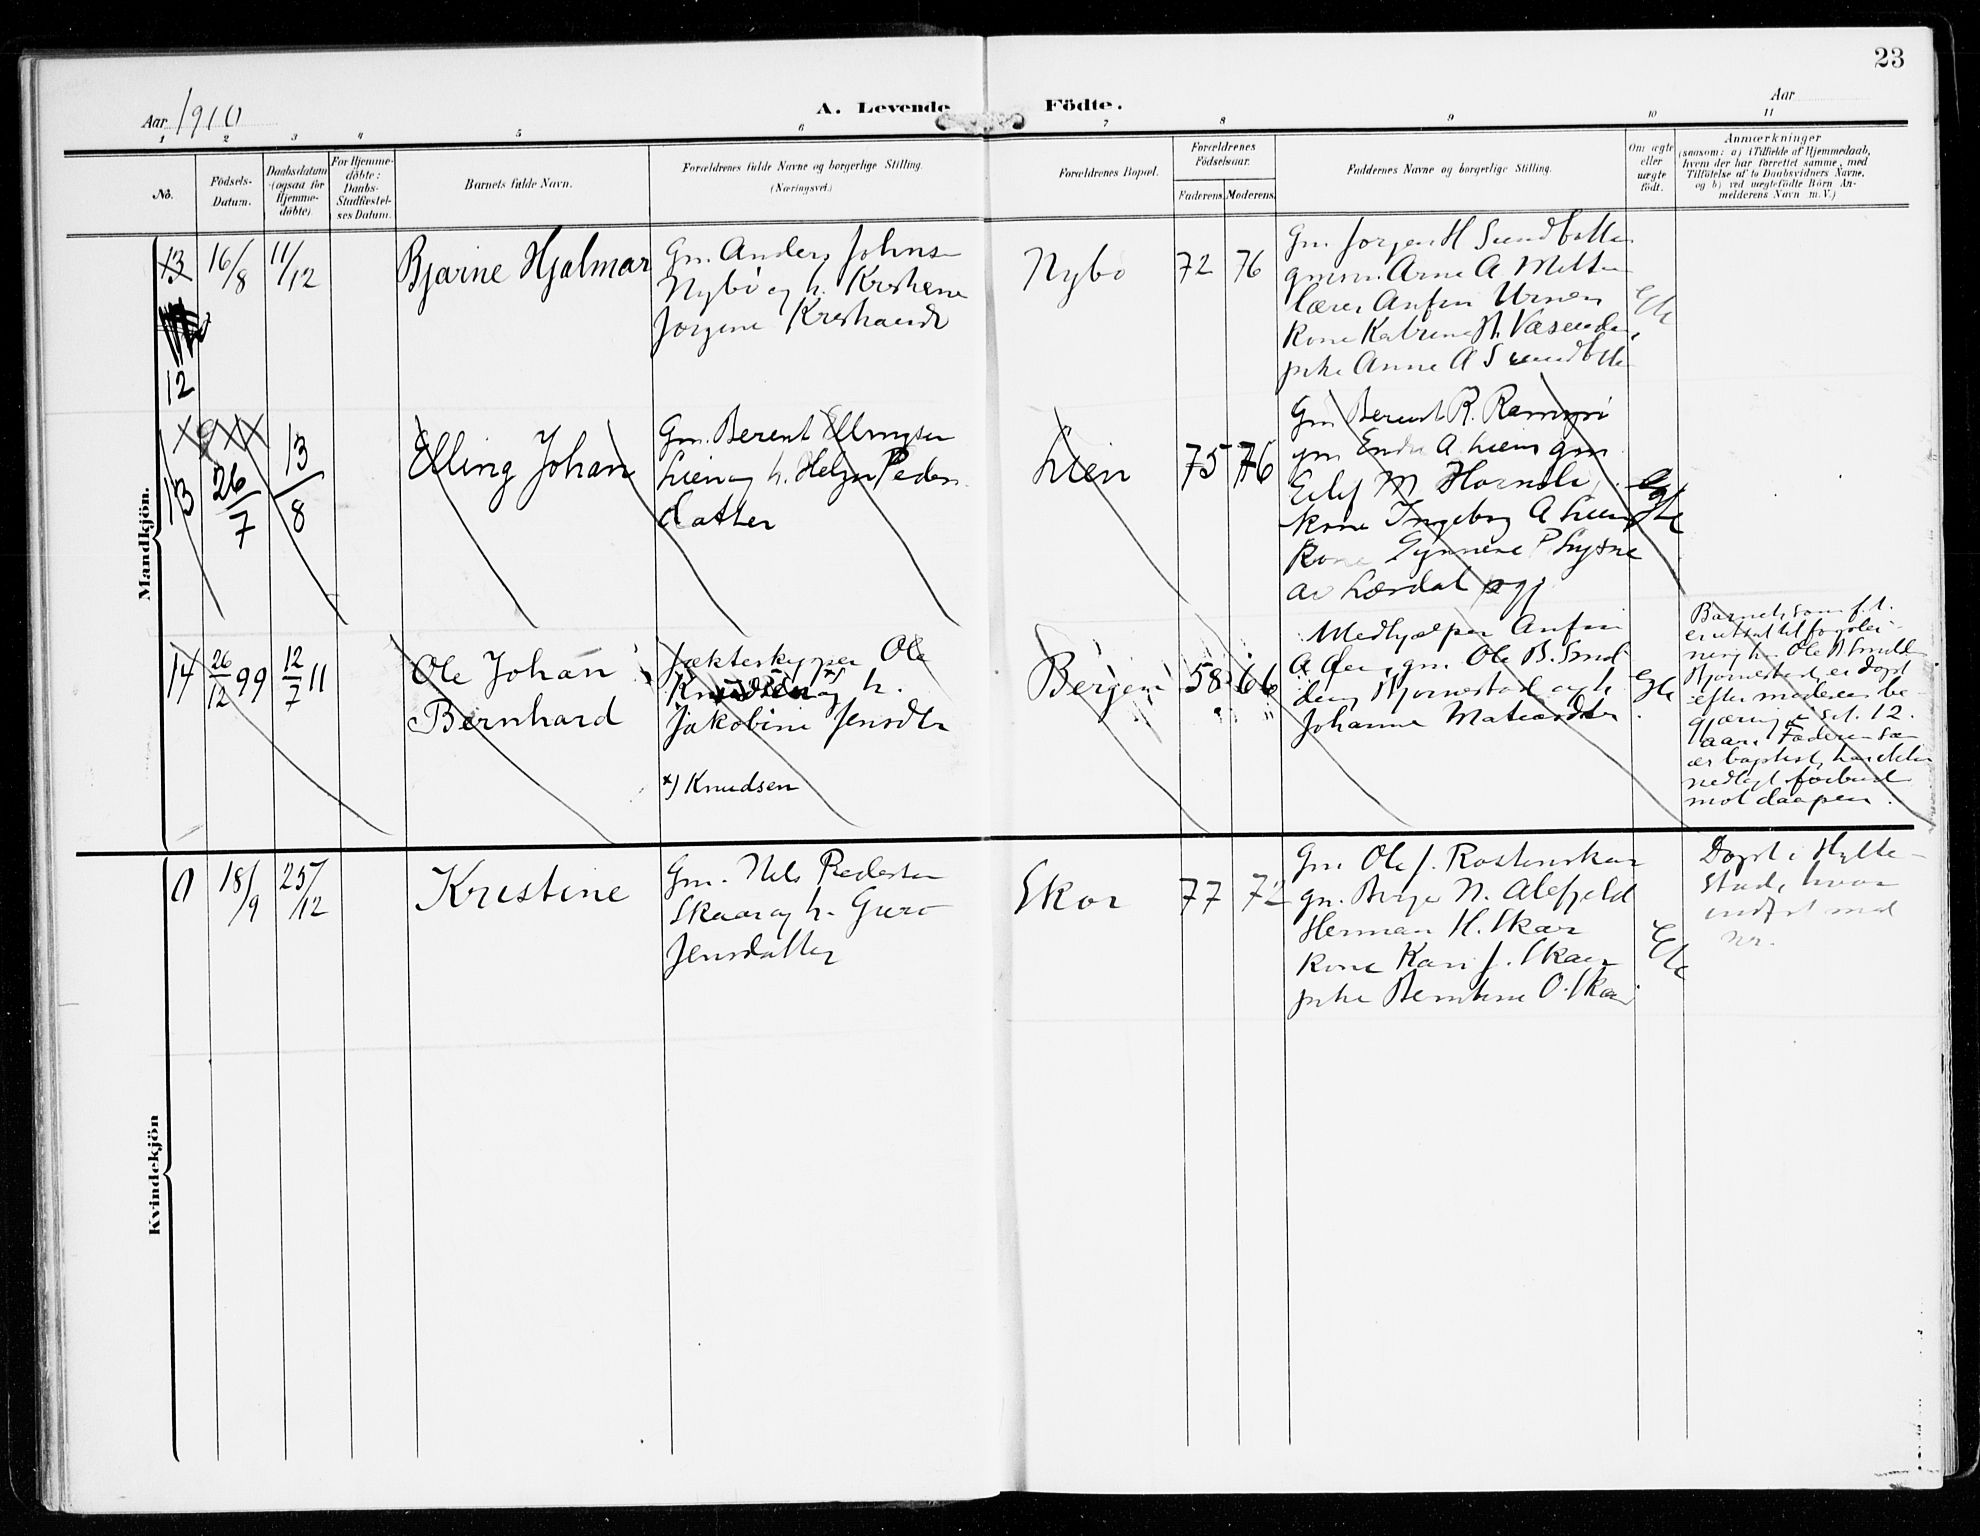 23
Aar 1910
A. Levende Födte.
Aar
1 2 3 4 5 6 7 8 9 10 11
No.
Födsels-Datum.
Daabsdatum (ogsaa for Hjemme-döbte)
For Hjemme-döbte: Daabs-Stadfæstel-ses Datum.
Barnets fulde Navn.
Forældrenes fulde Navne og borgerlige Stilling.
(Næringsvei.)
Forældrenes Bopæl.
Forældrenes Födselsaar.
Faderens. Moderens.
Faddernes Navne og borgerlige Stilling.
Om ægte eller uægte födt.
Anmærkninger
(saasom: a) i Tilfælde af Hjemmedaab,
hvem der har forrettet samme, med
Tilföielse af to Daabsvidners Navne,
og b) ved uægtefödte Börn An-
melderens Navn m. V.)
Mandkjön.
13
12
16/8
11/12
Bjarne Hjalmar
Gm. Anders Johns
Nybö og h.
Jorgine
Nybö
72 76
Gm Jorgen H Sundbotten
Arne A
lærer Anfin Urnes
Kone Katrine
pike Anne A Sundbotten
Egte
13
26/7
13/8
Elling Johan
Gm. Berent Ellingsen
Lien og h. Helga Peders
datter
Lien
75 76
Gm Berent R.
gm Endre A Lien gm
Eilif M
Kone Ingeborg A Lien
Kone P
av Lærdal
Egte
14
26/12 99
12/7 11
Ole Johan
Bernhard
Jækteskipper Ole
Knudsen x) og h.
Jakobine Jensdtr
x) Knudsen
Bergen
58 66
Medhjælper Anfin
A gm. Ole B.
Bjørnestad og h
Johanne
Egte
Barnet, som f. t.
er utsat til forplei-
ning h. Ole B
Bjørnestad, er døpt
efter moderens be-
gjæring i sit 12.
aar. Faderen som
er baptist, har ikke
nedlagt forbud
mot daapen.
Kvindekjön
18/9
25/12
Kristine
Gm. Nils Pedersen
Skaar og h. Guro
Jensdatter
Skor
77 72
Gm Ole J.
gm. N. Alefjeld
Herman H. Skar
Kone Kari J. Skaar
pike Berntine O. Skar
Egte
Døpt i Hylle-
stad, hvor
indført med
nr.